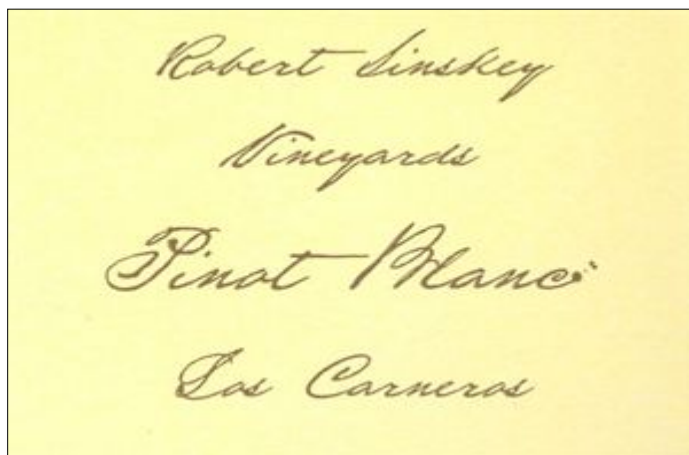 Robert Sinskey
Vineyards
Pinot Blanc
Los Carneros